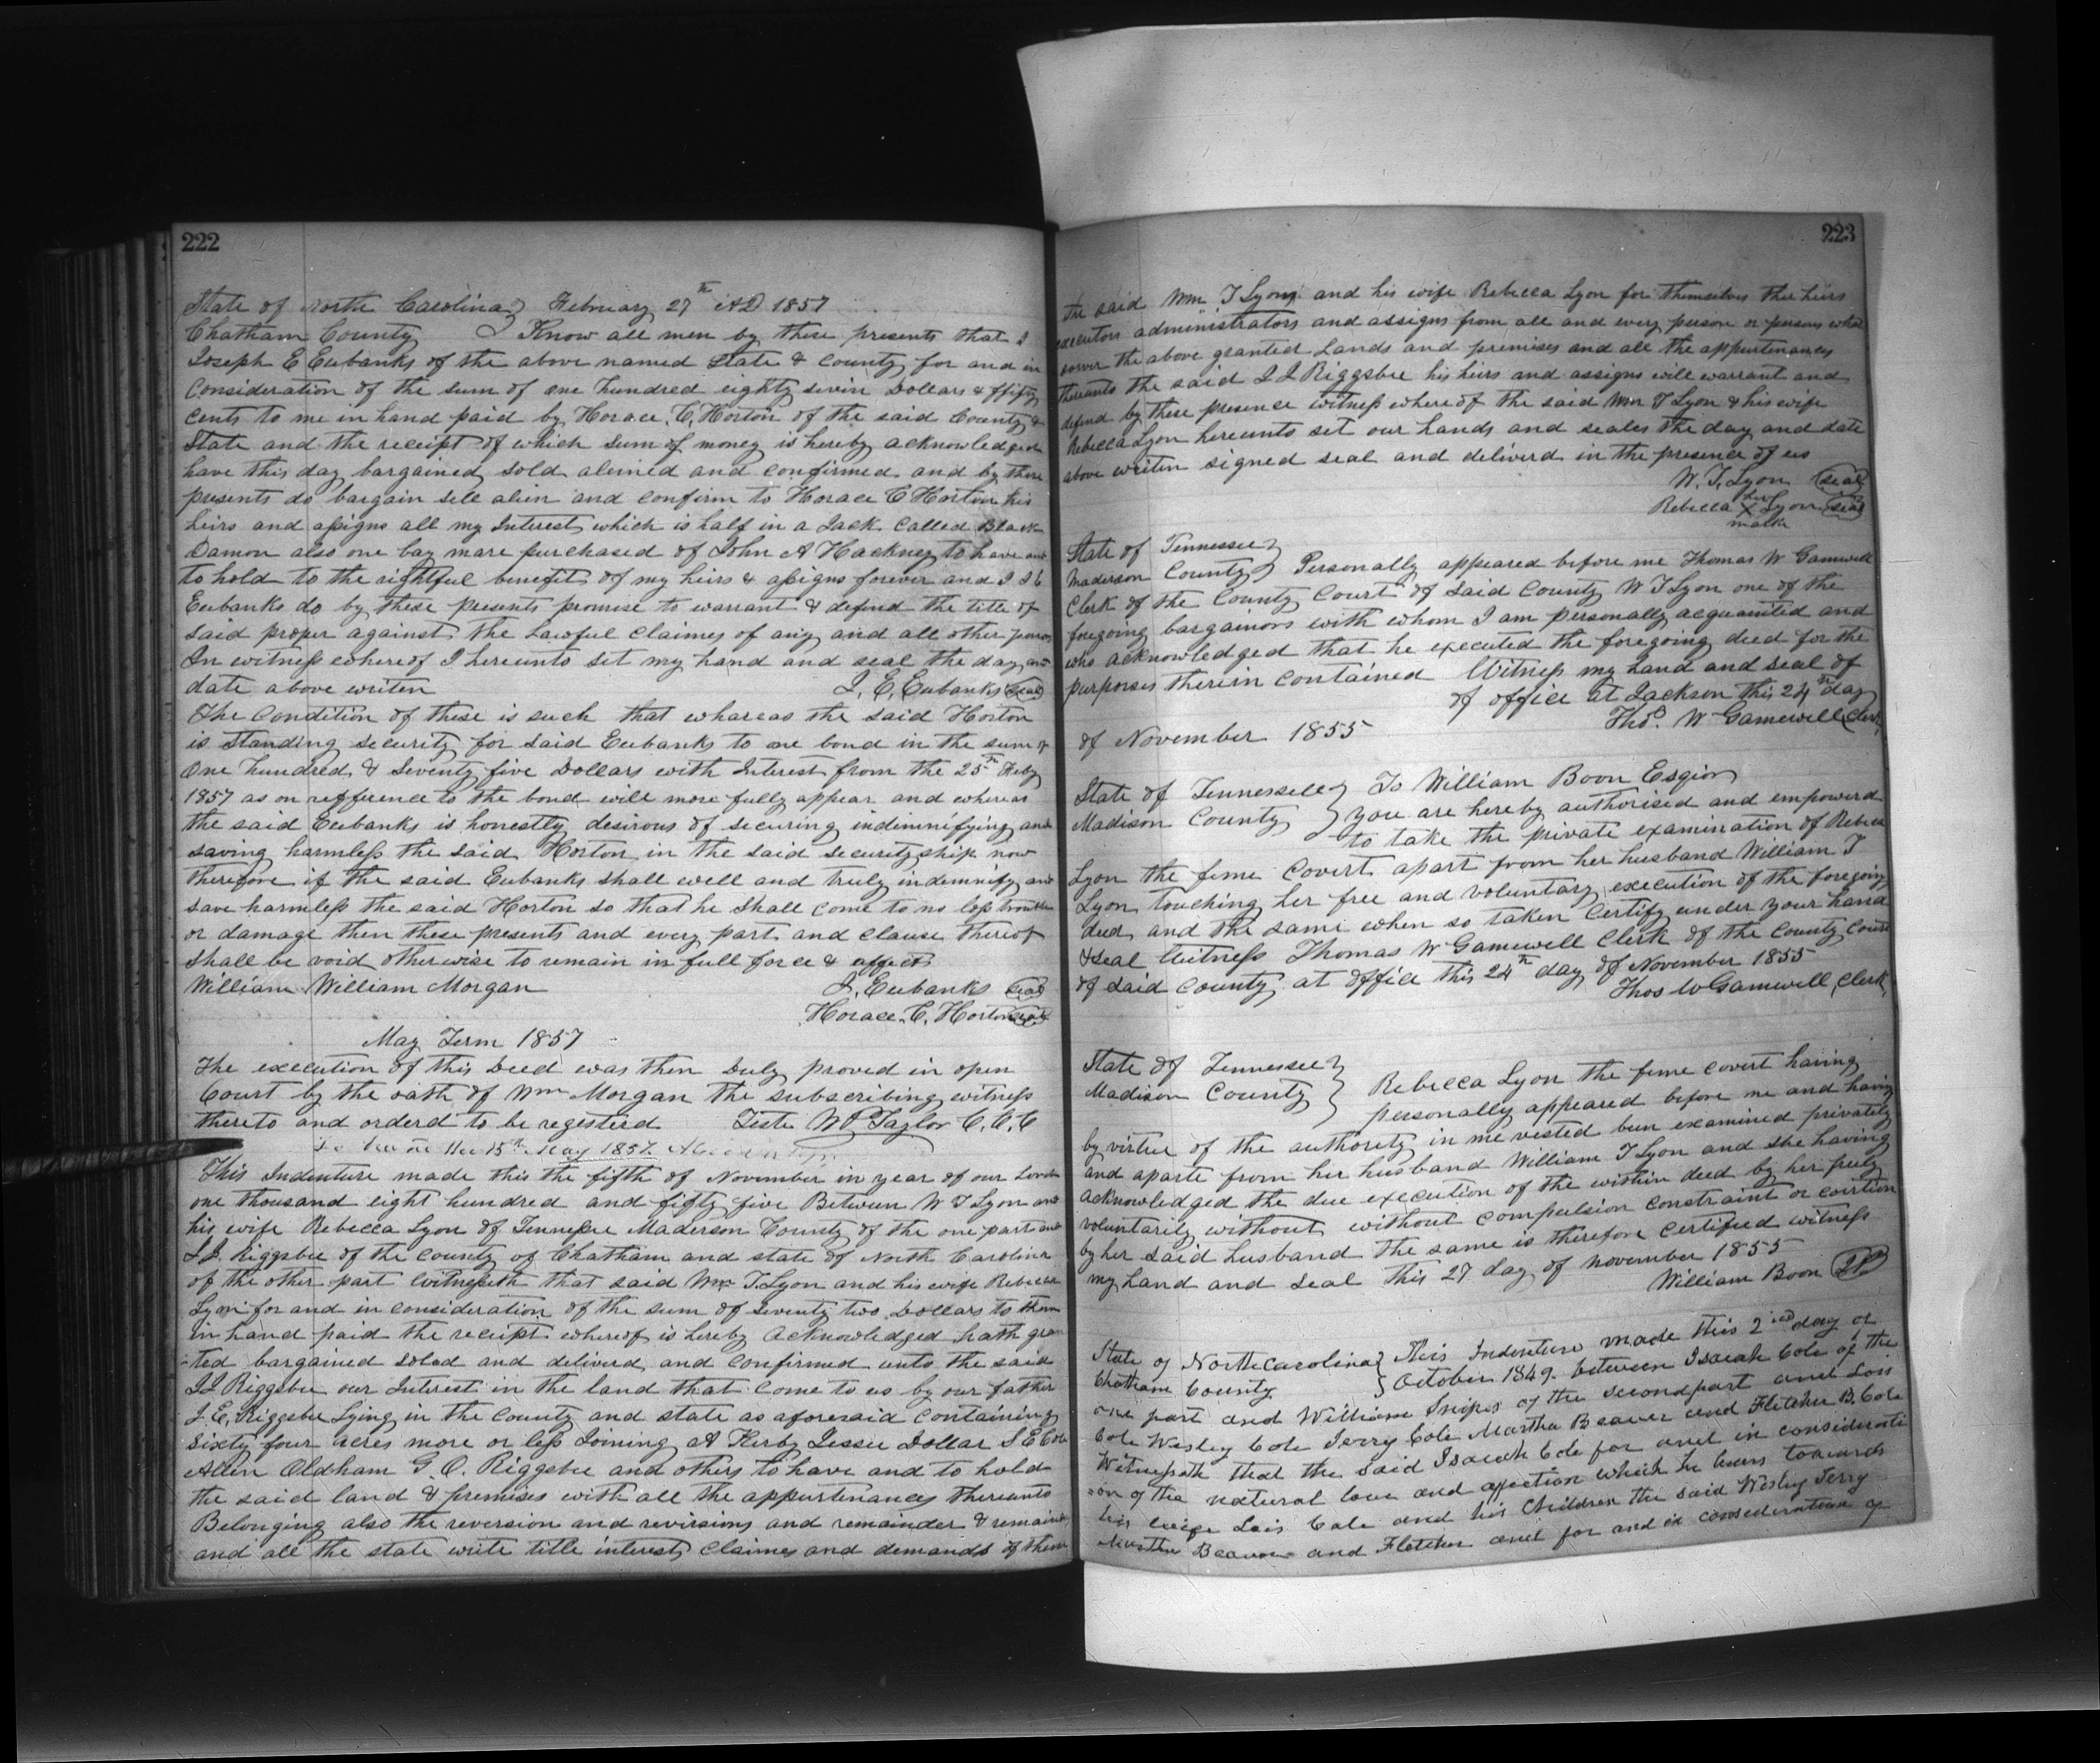 222
State of North Carolina } February 27th AD 1857
Chatham County } Know all men by these presents that I
Joseph E Eubanks of the above named State & County for and in
Consideration of the sum of one hundred eighty seven Dollars & fifty
Cents to me in hand paid by Horace. C. Horton of the said County &
State and the receipt of which sum of money is hereby acknowledged
have this day bargained sold aliened and confirmed and by these
presents do bargain sell alien and confirm to Horace C Horton his
heirs and assigns all my Interest which is half in a Jack Called Black
Damon also one bay mare purchased of John A Hackney to have and
to hold to the rightful benefit of my heirs & assigns forever and I J E
Eubanks do by these presents promise to warrant & defend the title of
said proper against the Lawful Claimes of any and all other persons
In witness whereof I hereunto set my hand and seal the day and
date above writen J. E. Eubanks (seal)
The Condition of these is such that whereas the said Horton
is standing security for said Eubanks to one bond in the sum of
One hundred & Seventy five Dollars with Interest from the 25th Feby
1857 as on refference to the bond will more fully appear and whereas
the said Eubanks is honestly desirous of securing indimnifying and
saving harmless the said Horton in the said securityship now
therefore if the said Eubanks shall well and truly indemnify and
save harmless the said Horton so that he shall come to no loss trouble
or damage then these presents and every part and clause thereof
shall be void otherwise to remain in full force & affect
William William Morgan J. Eubanks (seal)
Horace. C. Horton (seal)
May Term 1857
The execution of this Deed was then Duly proved in open
Court by the oath of Wm Morgan the subscribing witness
thereto and orderd to be registerd Teste W P Taylor C. C. C
15th May 1857
This Indenture made this the fifth of November in year of our Lord
one thousand eight hundred and fifty five Between W T Lyon and
his wife Rebecca Lyon of Tennessee Maderson County of the one part and
J J. Riggsbee of the County of Chatham and state of North Carolina
of the other part Witnesseth that said Wm T. Lyon and his wife Rebecca
Lyon for and in consideration of the sum of seventy two Dollars to them
in hand paid the receipt whereof is hereby acknowledged hath gran
-ted bargained solad and deliverd and confirmed unto the said
J J Riggsbee our Interest in the land that come to us by our father
J. E. Riggsbee Lying in the County and state as aforesaid containing
sixty four acres more or less Joining A Kerby Jessee Dollar S E Cole
Allen Oldham G. O. Riggsbee and others to have and to hold
the said land & premises with all the appurtinances thereunto
Belonging also the reversion and revirsions and remainder & remain
and all the state write title interest Claimes and demands of them
223
the said Wm T Lyon and his wife Rebecca Lyon for themselves ther heirs
executors administrators and assigns from all and every person or persons what
sorver the above granted Lands and premises and all the appurtenances
thereunto the said J J Riggsbee his heirs and assigns will warrant and
defend by these presence witness whereof the said Wm T Lyon & his wife
Rebecca Lyon hereunto set our hands and seales the day and date
above writen signed seal and deliverd in the presence of us
W. T. Lyon (seal)
her
Rebecca X Lyon (seal)
marke
State of Tennessee }
Maderson County } Personally appeared before me Thomas W Gamwell
Clerk of the County Court of said County W T Lyon one of the
foregoing bargainors with whom I am personally acquainted and
who acknowledged that he executed the foregoing deed for the
purposes therein contained Witness my hand and seal of
of office at Jackson this 24th day
of November 1855 Thos. W Gamewell Clerk
State of Tennessee } To William Boon Esqior
Madison County } You are hereby authorised and empowerd
to take the private examination of Rebecca
Lyon the feme Covert apart from her husband William T
Lyon touching her free and voluntary execution of the foregoing
deed and the same when so taken certify under your hand
& seal Witness Thomas W Gamewell Clerk of the County Court
of said County at office this 24th day of November 1855
Thos W Gamewell Clerk
State of Tennessee }
Madison County } Rebecca Lyon the feme covert having
personally appeared before me and having
by virtue of the authority in me vested bun examined privately
and aparte from her husband William T Lyon and she having
acknowledged the due execution of the within deed by her freely
voluntarily without without compulsion constraint or coertion
by her said husband the same is therefore certified witness
my hand and seal this 27 day of november 1855
William Boon (JP)
State of North Carolina } This Indenture made this 2nd day of
Chatham County } October 1849. between Isaeah Cole of the
one part and William Snipes of the second part and Lois
Cole Wesley Cole Jerry Cole Martha Beaver and Fletcher B. Cole
Witnesseth that the said Isaeah Cole for and in considerati
-on of the natural love and affection which he bears towards
his wife Lois Cole and his Children the said Wesley Jerry
Martha Beaver and Fletcher and for and in consideration of